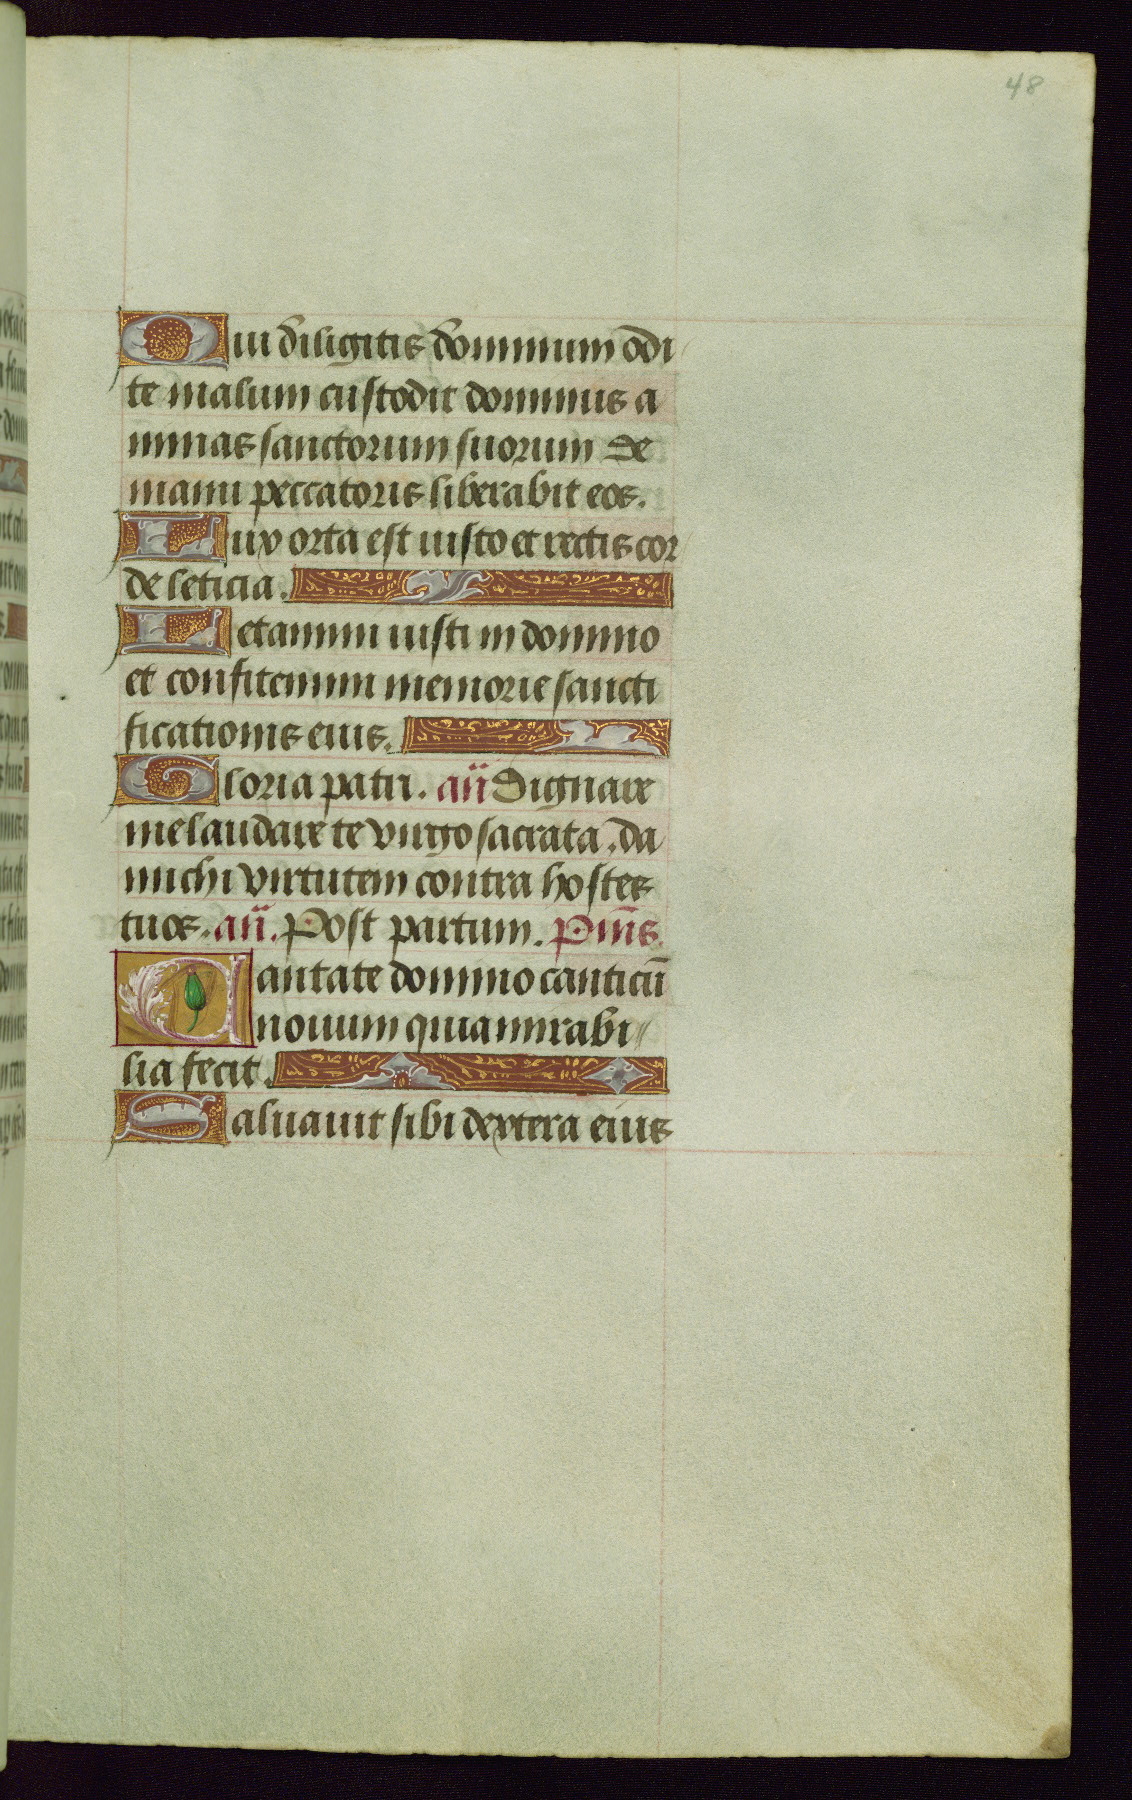 48
Qui diligitis dominum odi
te malum custodit dominus a
nimas sanctorum suorum de
manu peccatoris liberabit eos.
Lux orta est iusto et rectis cor
de leticia.
Letamini iusti in domino
et confitemini memorie sancti
ficationis eius.
Gloria patri. añ Dignare
me laudare te virgo sacrata. da
michi virtutem contra hostes
tuos. añ. Post partum. Psm̄s
Cantate domino canticū
novum quia mirabi
lia fecit.
Saluavit sibi dextera eius